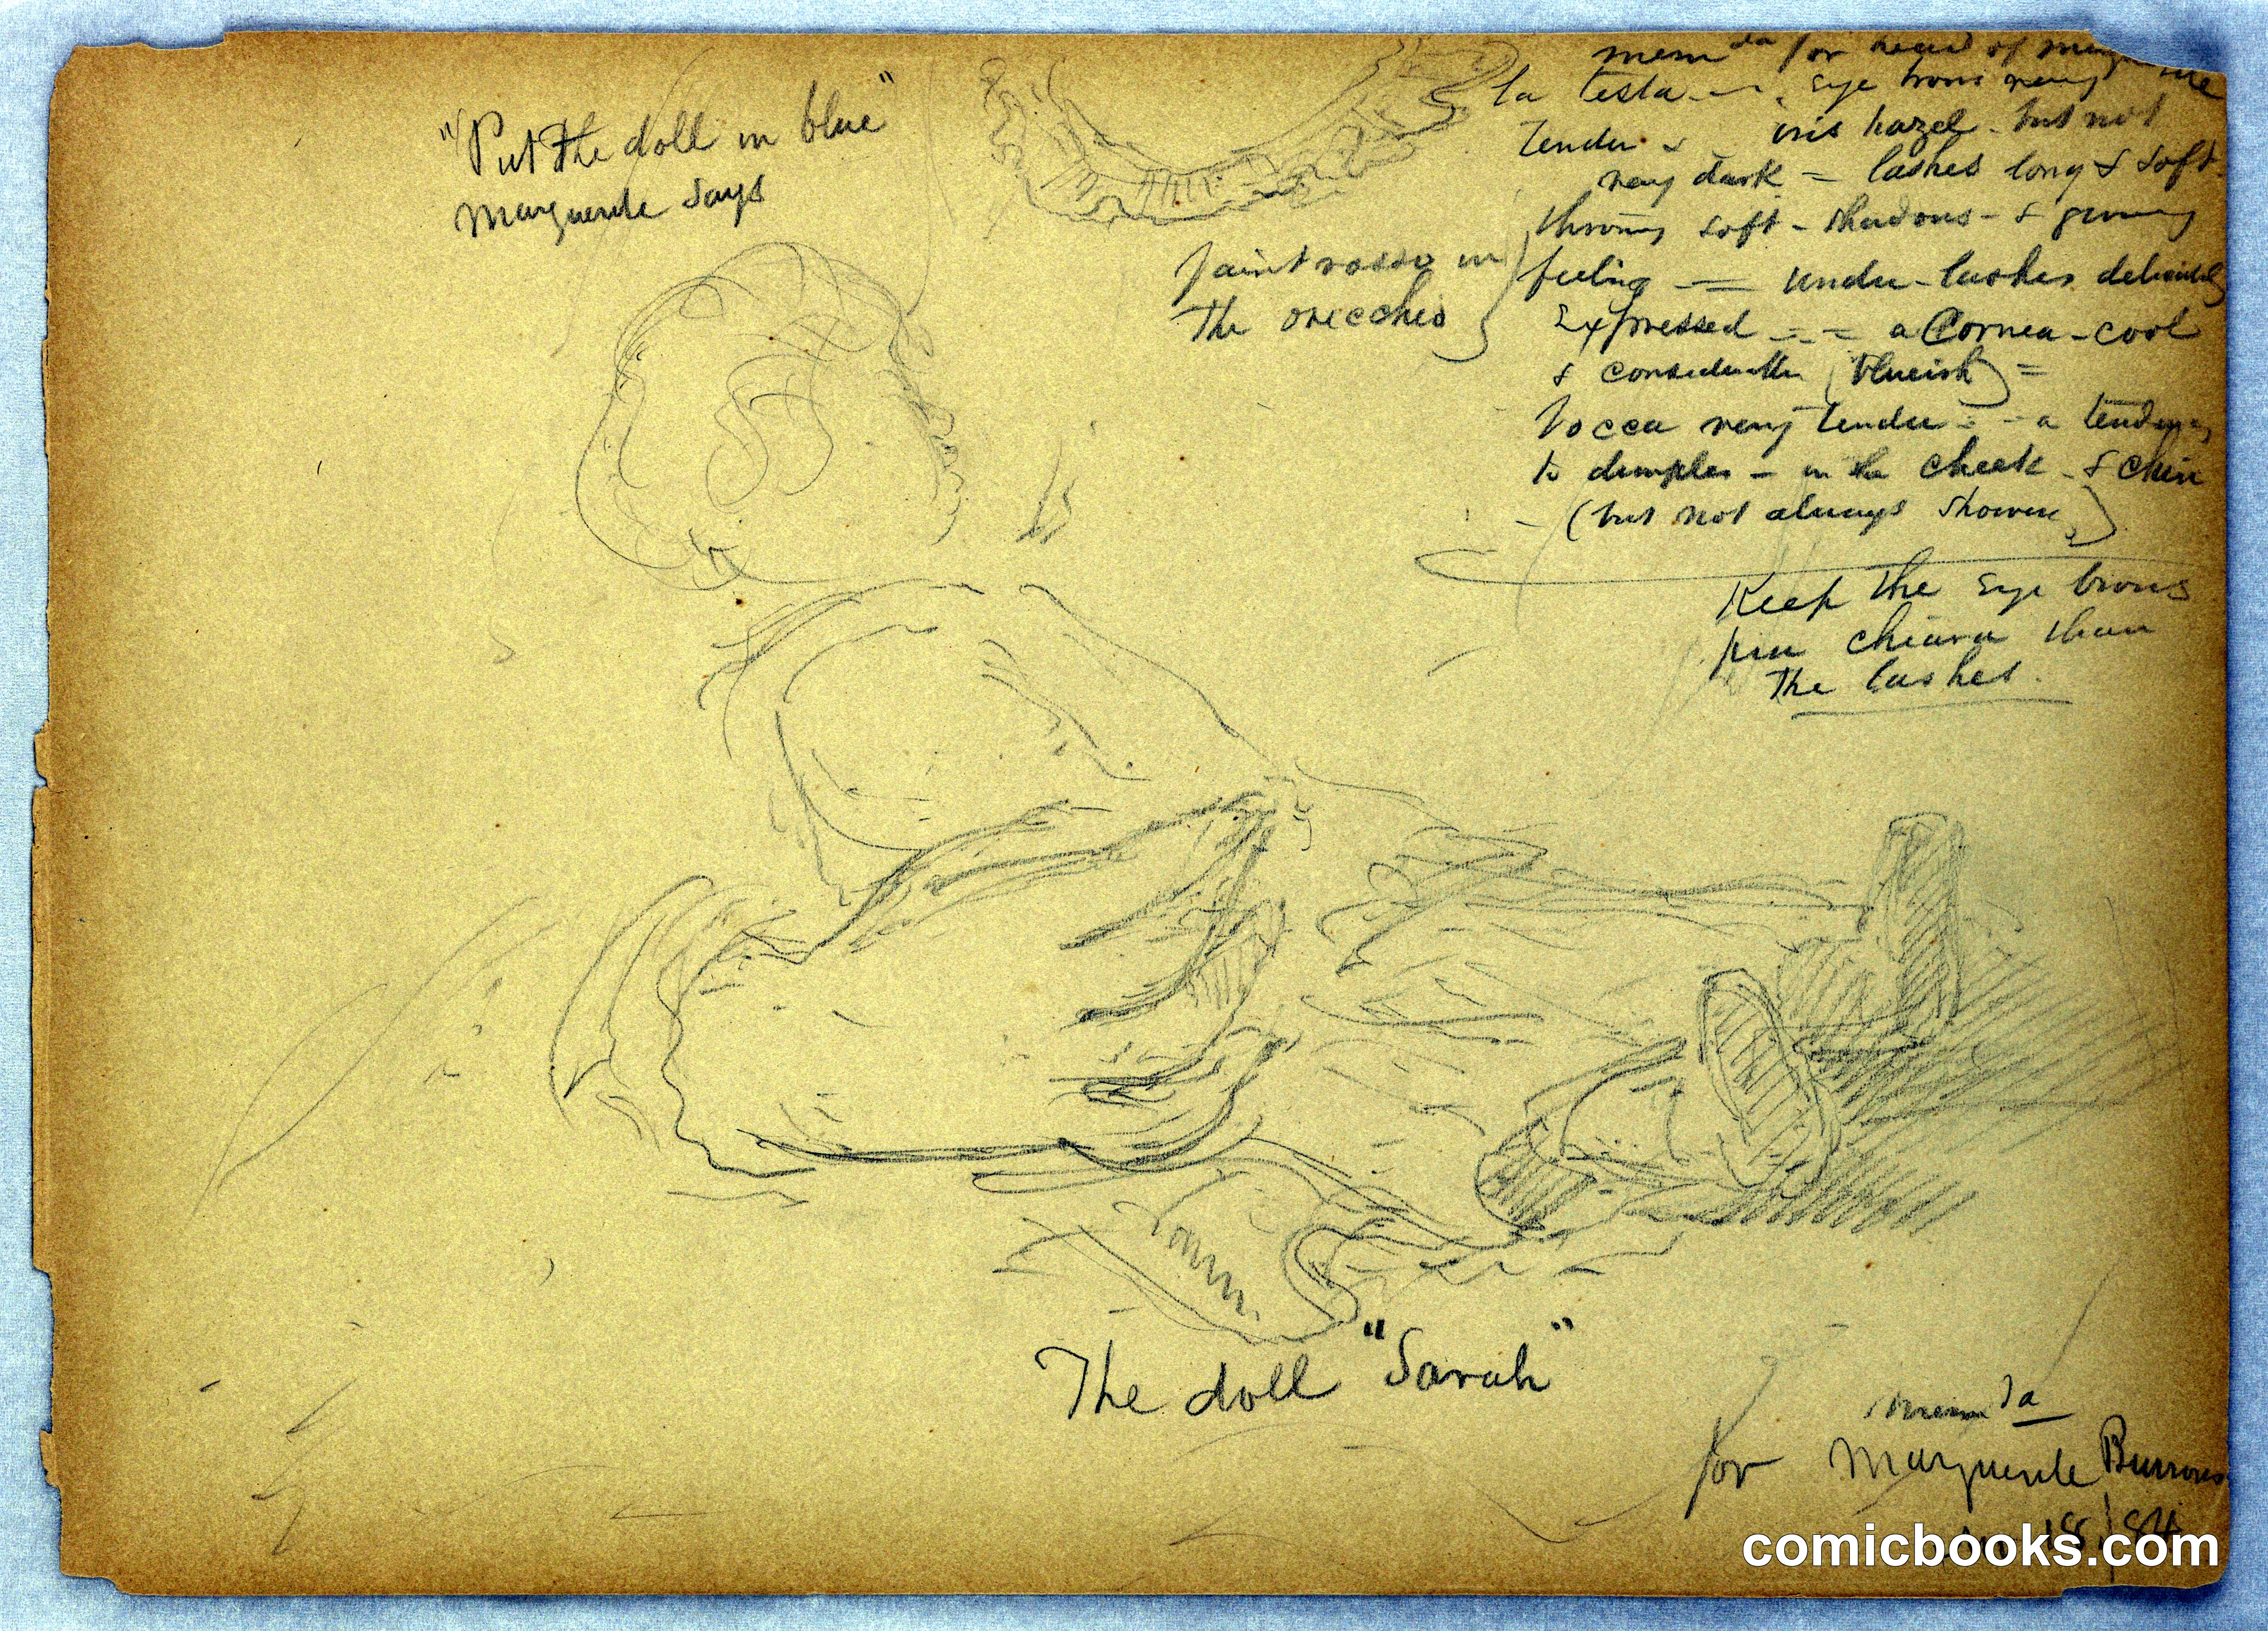 "Put the doll in blue"
Marguerite says
mem da for head of
la testa - eye brows very
tender & iris hazel - but not
very dark = lashes long & soft
throwing soft - shadows - & giving
feeling = under-lashes delicately
Expressed = a Cornea - cool
& considerable (blueish) =
bocca very tender - a tendency
to dimples - in the cheek & chin
- (but not always shown)
faint rosso in
the orecchio
Keep the eye brows
piu chiara than
the lashes.
The doll "Sarah"
mem da
for Marguerite Burrows
18/84
comicbooks.com